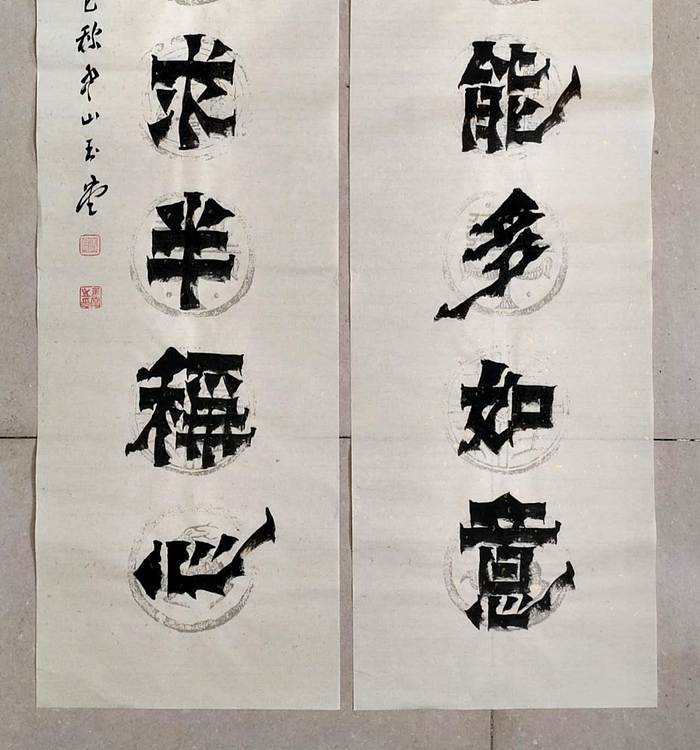 能多如意
求半稱心
巳秋山玉堂